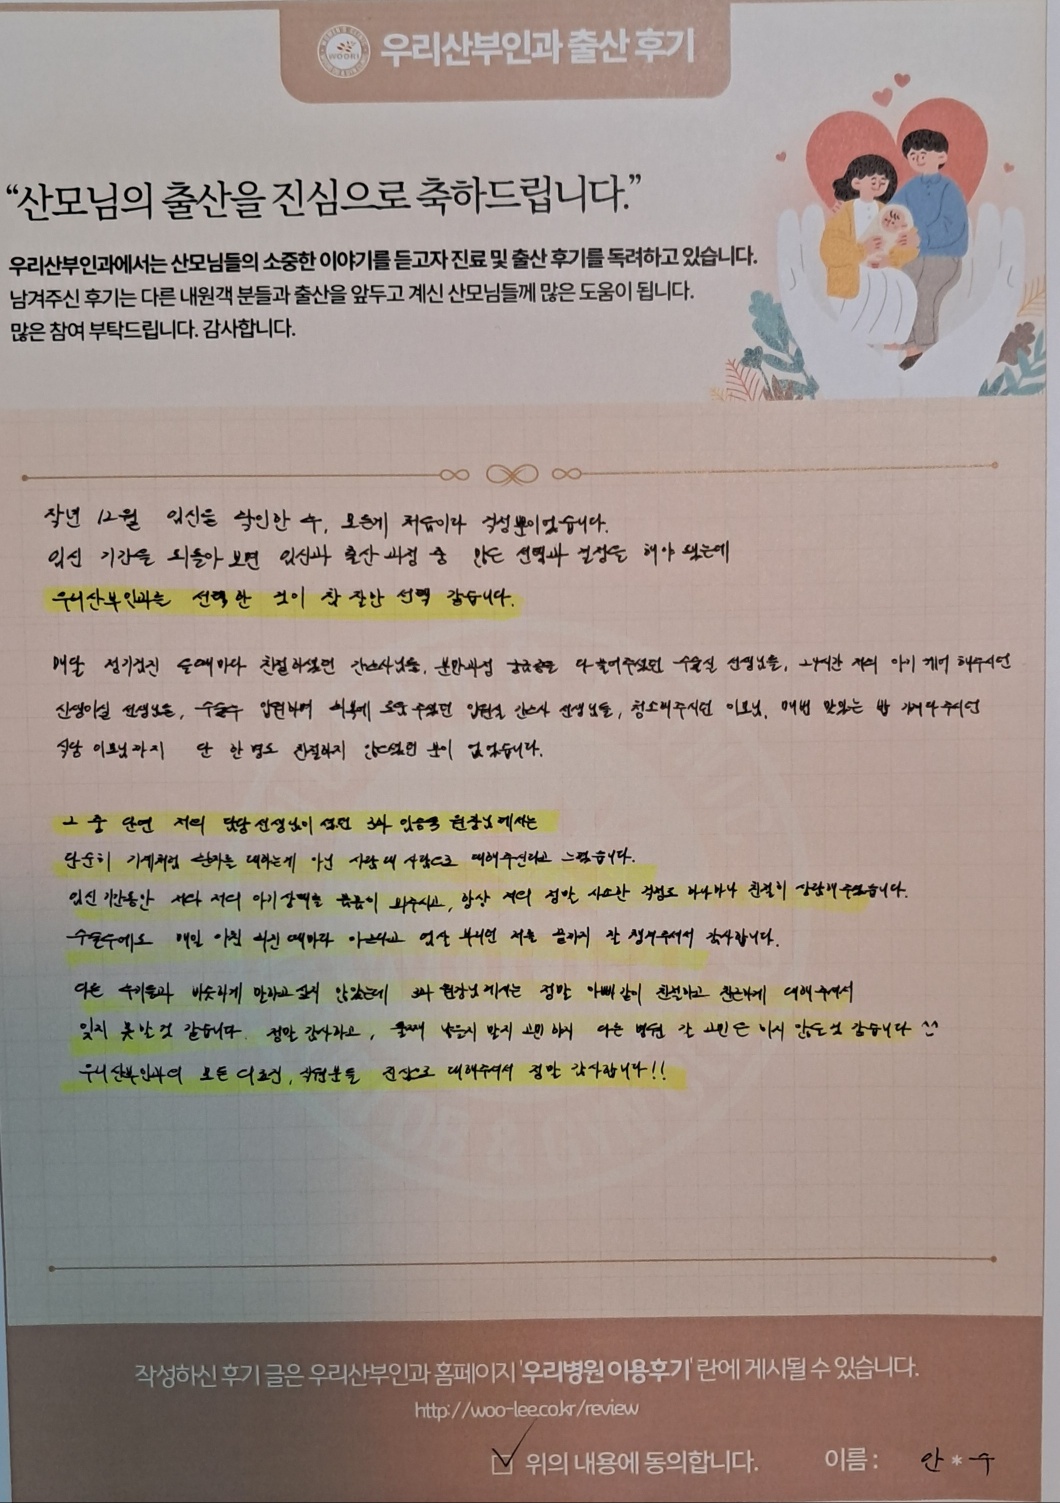 WOORI
우리산부인과 출산 후기
“산모님의 출산을 진심으로 축하드립니다.”
우리산부인과에서는 산모님들의 소중한 이야기를 듣고자 진료 및 출산 후기를 독려하고 있습니다.
남겨주신 후기는 다른 내원객 분들과 출산을 앞두고 계신 산모님들께 많은 도움이 됩니다.
많은 참여 부탁드립니다. 감사합니다.
작년 12월 임신을 확인한 후, 모든게 처음이라 걱정뿐이었습니다.
임신 기간을 되돌아 보면 임신과 출산 과정 중 많은 선택과 결정을 해야 했는데
우리산부인과를 선택한 것이 참 잘한 선택 같습니다.
매달 정기검진 올때마다 친절하셨던 간호사님들, 분만과정 궁금증을 다 풀어주셨던 수술실 선생님들, 24시간 저의 아기 케어 해주시던
신생아실 선생님들, 수술후 입원하며 회복에 도움 주셨던 입원실 간호사 선생님들, 청소해주시던 이모님, 매번 맛있는 밥 가져다주시던
식당 이모님까지 단 한 명도 친절하지 않으셨던 분이 없었습니다.
그 중 단연 저의 담당선생님이셨던 3과 원장님께서는
단순히 기계처럼 환자를 대하는게 아닌 사람 대 사람으로 대해주신다고 느꼈습니다.
임신기간동안 저와 저의 아기상태를 꼼꼼히 봐주시고, 항상 저의 정말 사소한 걱정도 하나하나 친절히 상담해주셨습니다.
수술후에도 매일 아침 회진 때마다 아프다고 엄살 부리던 저를 끝까지 잘 챙겨주셔서 감사합니다.
다른 후기들과 비슷하게 말하고싶지 않았는데 3과 원장님께서는 정말 아빠같이 친절하고 친근하게 대해주셔서
잊지 못할것 같습니다. 정말 감사하고, 둘째 낳을지 말지 고민하지 다른 병원 갈 고민은 하지 않을것 같습니다 ^^
우리산부인과의 모든 의료진, 직원분들 진심으로 대해주셔서 정말 감사합니다!!
작성하신 후기 글은 우리산부인과 홈페이지 '우리병원 이용후기' 란에 게시될 수 있습니다.
http://woo-lee.co.kr/review
위의 내용에 동의합니다. 이름 : 안 * 수